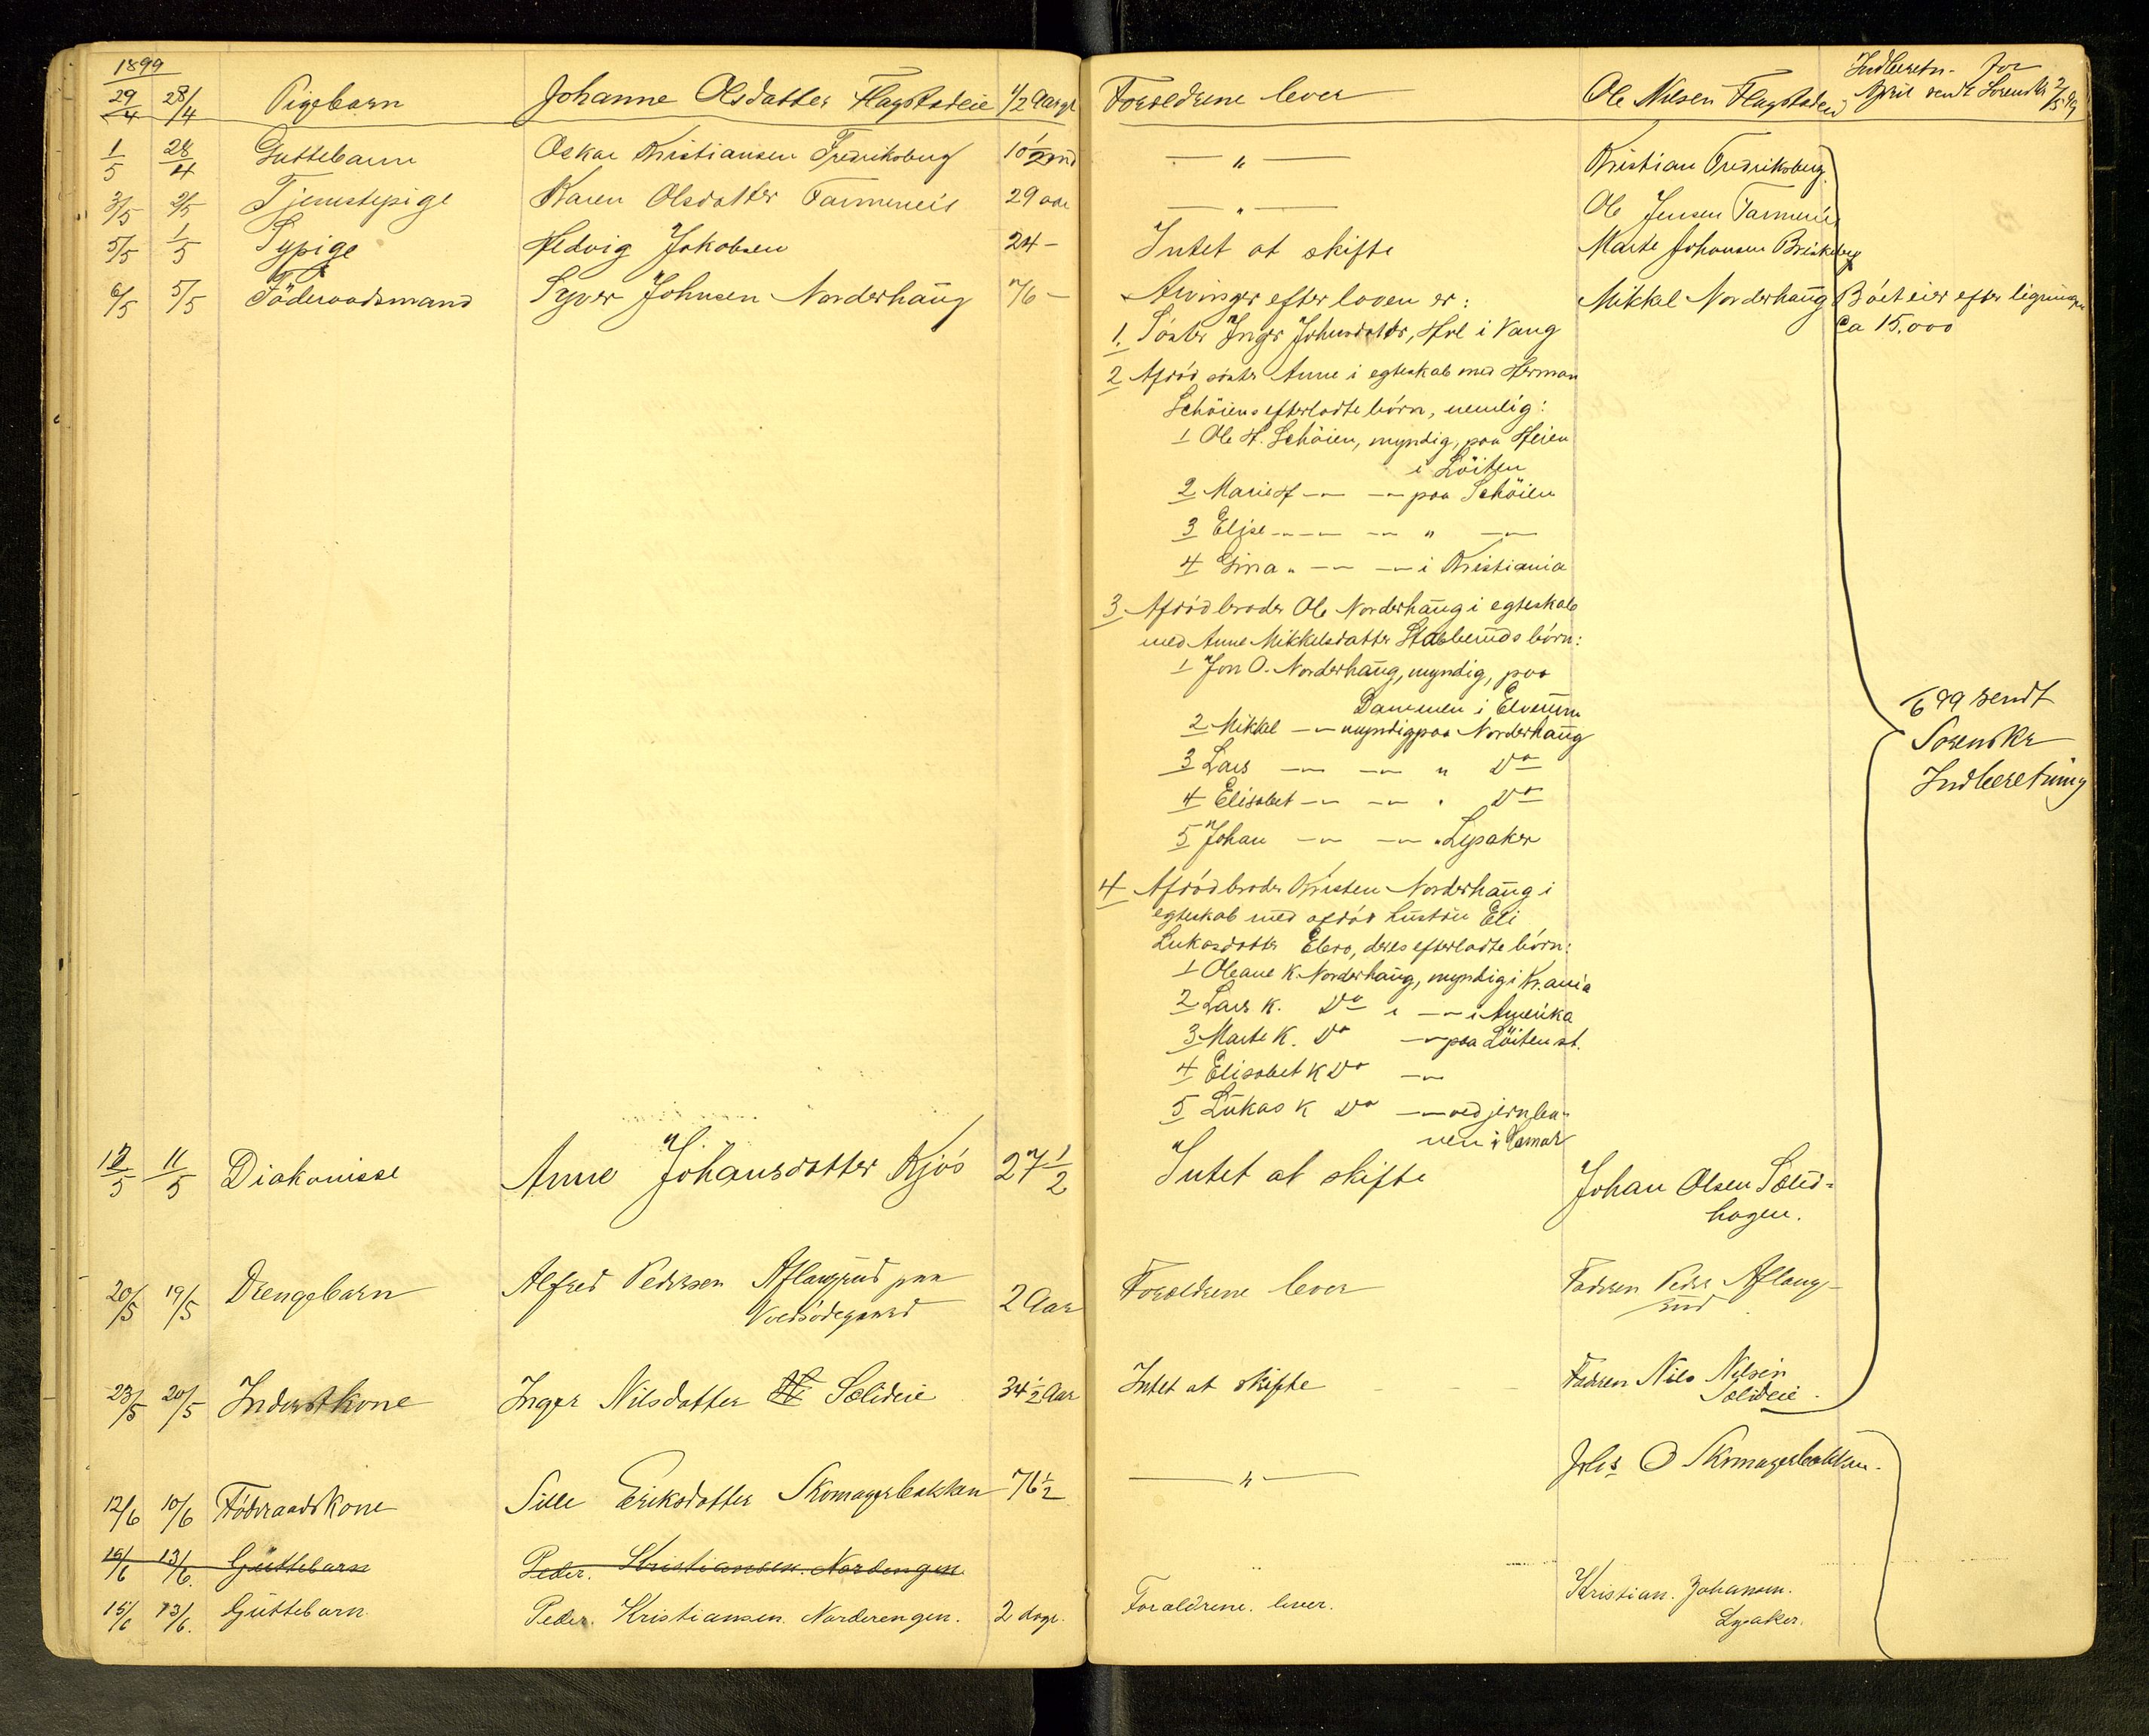 1899
29/4 28/4 Pigebarn Johanne Olsdatter Flagstadeie 1/2 Aargl Forældrene lever Ole Nilsen Flagstadeie Indberetn. for April sendt Sorenskr 2/5 99
1/5 28/4 Guttebarn Oskar Kristiansen Fredriksberg 10 1/2 md — " — Kristian Fredriksberg
3/5 2/5 Tjenstepige Karen Olsdatter Farmereie 29 aar — " — Ole Jensen Farmereie
5/5 1/5 Sypige Hedvig Jakobsen 24 — Intet at skifte Marte Johansen Brinkeberg
6/5 5/5 Föderaadsmand Syver Johnsen Norderhaug 76 — Arvinger efter loven er: Mikkel Norderhaug Bóet eier efter ligningen
Ca 15.000
1. Sóster Inger Johnsdatter, Hol i Vang
2 Afdód sóster Anne i egteskab med Herman
Schöiens efterladte bórn, nemlig:
1 Ole H. Schöien, myndig, paa Heien
i Löiten
2 Marie H — — paa Schöien
3 Elise — — " —
4 Gina " — — i Kristiania
3 Afdód broder Ole Norderhaug i egteskab
med Anne Mikkelsdatter Stabberuds bórn:
1 Jon O. Norderhaug, myndig, paa
Dammen i Elverum
2 Mikkel — myndig paa Norderhaug
3 Lars — — " Do
4 Elisabet — — " Do
5 Johan — — " Lysaker
699 sendt
Sorenskr
Indberetning
4 Afdód broder Kristen Norderhaug i
egteskab med afdód hustru Eli
Lukasdatter Ebro, deres efterladte bórn:
1 Oleane K. Norderhaug, myndig i Kr.ania
2 Lars K. Do i — i Amerika
3 Marte K. Do — paa Löiten st.
4 Elisabet K Do —
5 Lukas K Do — ved jernba-
nen i Hamar
12/5 11/5 Diakonisse Anne Johansdatter Kjós 27 1/2 Intet at skifte Johan Olsen Sælid-
hagen.
20/5 19/5 Drengebarn Alfred Pedersen Aflangrud paa 2 Aar Forældrene lever Faderen Peder Aflang-
Voldsódegaard rud
23/5 20/5 Inderstkone Inger Nilsdatter Sælideie 34 1/2 Aar Intet at skifte Faderen Nils Nilsen
Sælideie
12/6 10/6 Föderaadskone Sille Eriksdatter Skomagerbakken 76 1/2 — " — Johs O Skomagerbakken.
15/6 13/6. Guttebarn Peder. Kristiansen. Nordengen.
15/6 13/6. Guttebarn. Peder. Kristiansen. Norderengen. 2 dage. Forældrene. lever. Kristian. Johansen.
Lysaker.